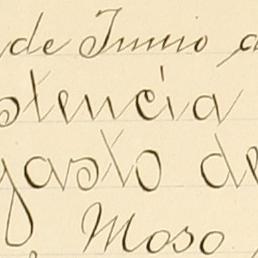 de Junio a
stencia
gasto de
Moso